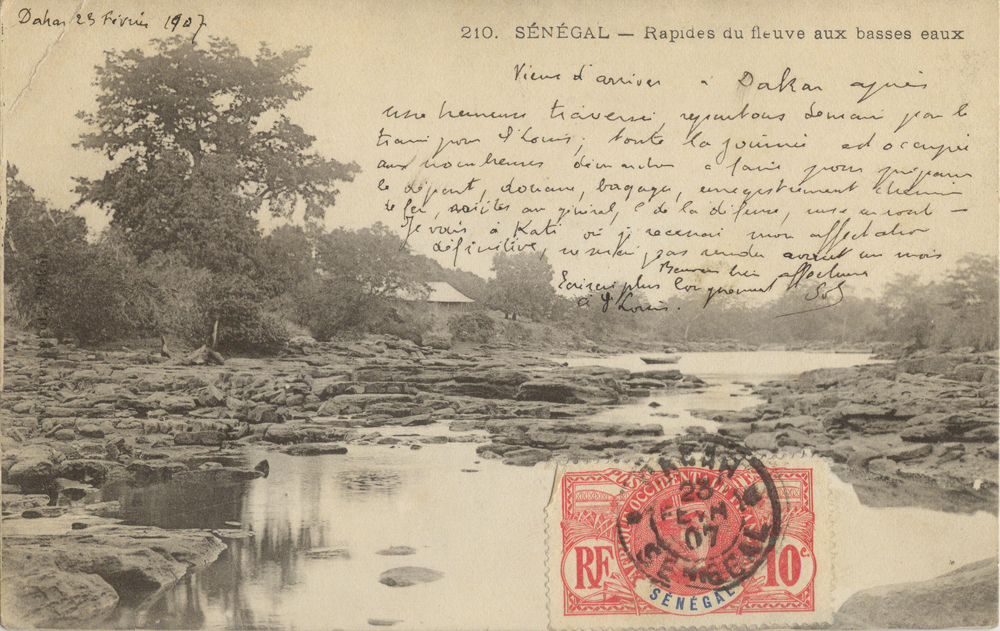 Dakar 23 Février 1907
210. SÉNÉGAL — Rapides du fleuve aux basses eaux
Viens d'arriver à Dakar après
une heureuse traversée, repartons demain par le
train pour St Louis; toute la journée est occupée
aux nombreuses démarches à faire pour préparer
le départ, douane, bagages, enregistrement chemin
de fer, visites au général, C de la défense,
Je vais à Kati où je recevrai mon affectation
définitive, ne serai pas rendu avant un mois
bien affectueux
Ecrirai plus longuement
à St Louis.
OCCIDENTALE
RF
10c
SÉNÉGAL
DAKAR
23
FEVR
07
SENEGAL